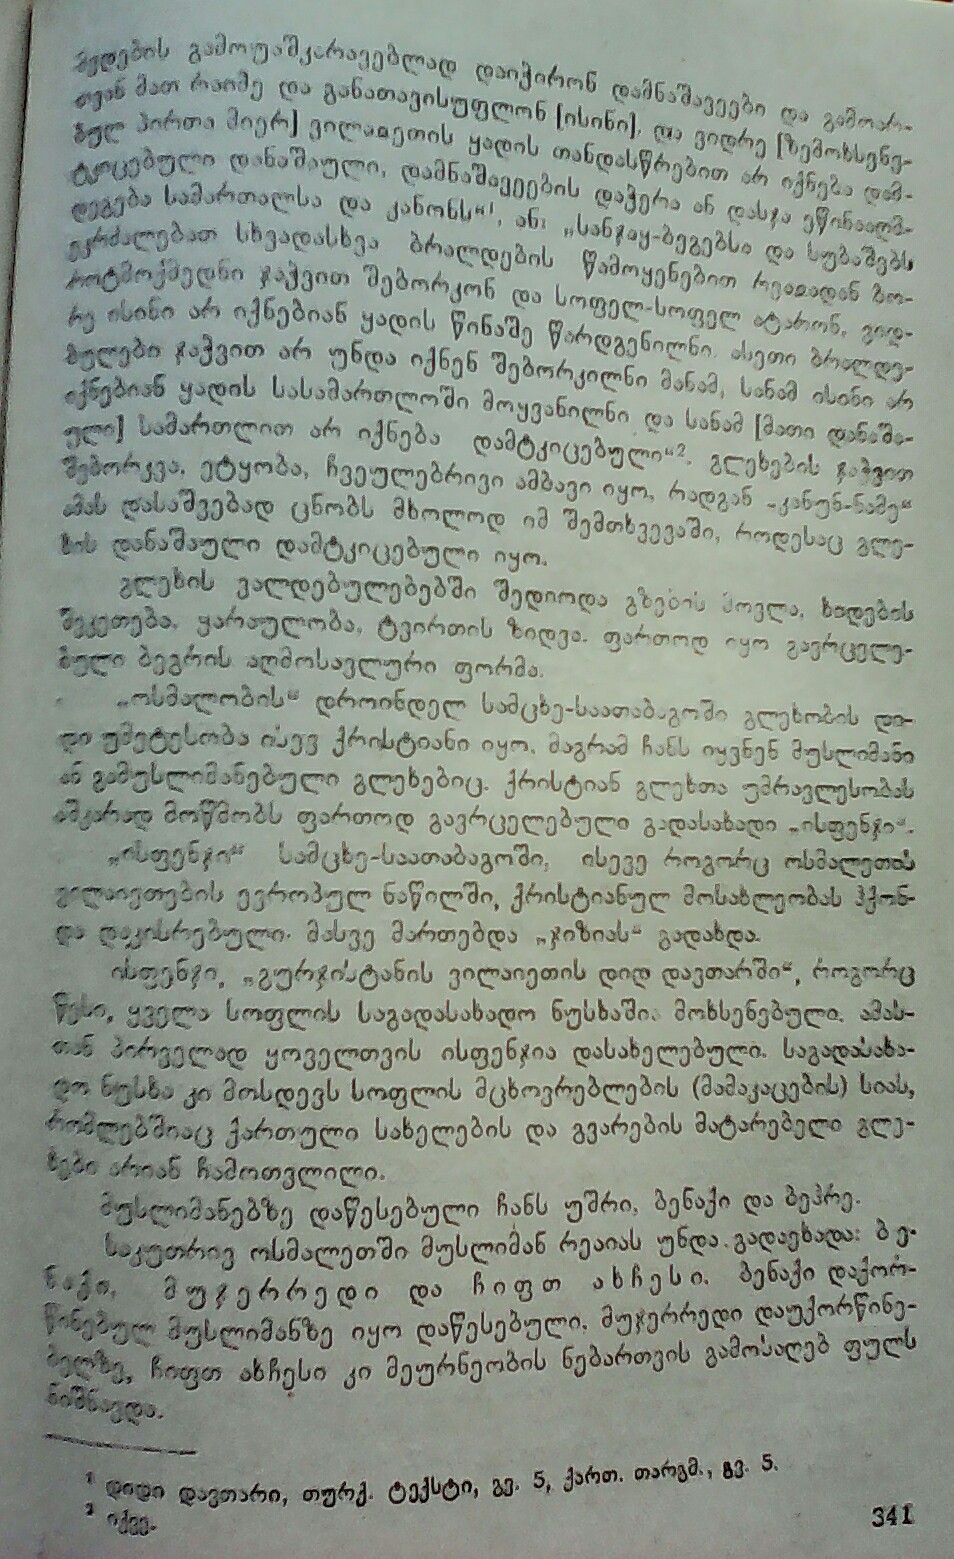 მედების გამოუაშკარავებლად დაიჭირონ დამნაშავეები და გამოარ-
თვან მათ რაიმე და განათავისუფლონ [ისინი], და ვიდრე [ზემოხსენე-
ბულ პირთა მიერ] ვილაიეთის ყადის თანდასწრებით არ იქნება დამ-
ტკიცებული დანაშაული, დამნაშავეების დაჭერა ან დასჯა ეწინააღმ-
დეგება სამართალსა და კანონს“¹, ან: „სანჯაყ-ბეგებსა და სუბაშებს
ეკრძალებათ სხვადასხვა ბრალდების წამოყენებით რეაიადან ბო-
როტმოქმედნი ჯაჭვით შებორკონ და სოფელ-სოფელ ატარონ, ვიდ-
რე ისინი არ იქნებიან ყადის წინაშე წარდგენილნი. ასეთი ბრალდე-
ბულები ჯაჭვით არ უნდა იქნენ შებორკილნი მანამ, სანამ ისინი არ
იქნებიან ყადის სასამართლოში მოყვანილნი და სანამ [მათი დანაშა-
ული] სამართლით არ იქნება დამტკიცებული“². გლეხების ჯაჭვით
შებორკვა, ეტყობა, ჩვეულებრივი ამბავი იყო, რადგან „კანუნ-ნამე“
ამას დასაშვებად ცნობს მხოლოდ იმ შემთხვევაში, როდესაც გლე-
ხის დანაშაული დამტკიცებული იყო.
გლეხის ვალდებულებებში შედიოდა გზების მოვლა, ხიდების
შეკეთება, ყარაულობა, ტვირთის ზიდვა. ფართოდ იყო გავრცელე-
ბული ბეგრის აღმოსავლური ფორმა.
„ოსმალობის“ დროინდელ სამცხე-საათაბაგოში გლეხობის დი-
დი უმეტესობა ისევ ქრისტიანი იყო, მაგრამ ჩანს იყვნენ მუსლიმანი
ან გამუსლიმანებული გლეხებიც. ქრისტიან გლეხთა უმრავლესობას
აშკარად მოწმობს ფართოდ გავრცელებული გადასახადი „ისფენჯი“.
„ისფენჯი“ სამცხე-საათაბაგოში, ისევე როგორც ოსმალეთის
ვილაიეთების ევროპულ ნაწილში, ქრისტიანულ მოსახლეობას ჰქონ-
და დაკისრებული. მასვე მართებდა „ჯიზიას“ გადახდა.
ისფენჯი, „გურჯისტანის ვილაიეთის დიდ დავთარში“, როგორც
წესი, ყველა სოფლის საგადასახადო ნუსხაში. მოხსენებული. ამას-
თან პირველად ყოველთვის ისფენჯია დასახელებული. საგადასახა-
დო ნუსხა კი მოსდევს სოფლის მცხოვრებლების (მამაკაცების) სიას,
რომლებშიაც ქართული სახელების და გვარების მატარებელი გლე-
ხები არიან ჩამოთვლილი.
მუსლიმანებზე დაწესებული ჩანს უშრი, ბენაქი და ბეჰრე.
საკუთრივ ოსმალეთში მუსლიმან რეაიას უნდა გადაეხადა: ბე-
ნაქი, მუჯერრედი და ჩიფთ ახჩესი. ბენაქი დაქორ-
წინებულ მუსლიმანზე იყო დაწესებული, მუჯერრედი დაუქორწინე-
ბელზე, ჩიფთ ახჩესი კი მეურნეობის ნებართვის გამოსაღებ ფულს
ნიშნავდა.
¹ დიდი დავთარი, თურქ. ტექსტი, გვ. 5, ქართ. თარგმ., გვ. 5.
² იქვე.
341